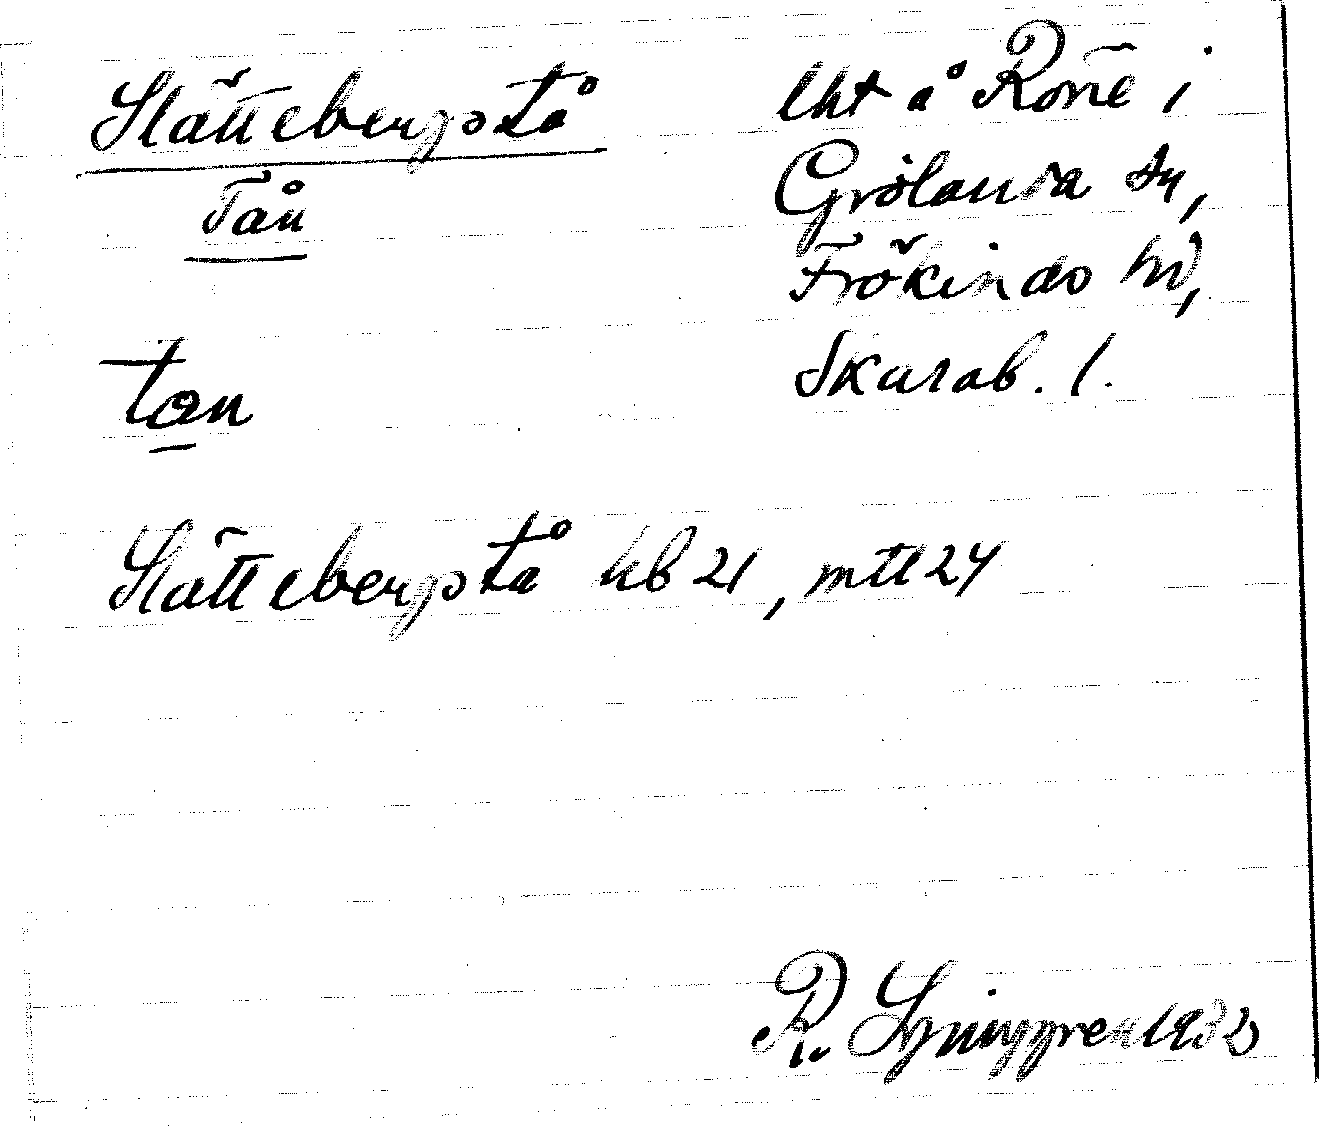 Slättebergstå
Tån
tan
lht å Rone i
Grolanda sn,
Frökinds hd,
Skarab. l.
Slättebergstå hb 21, mtl 24
R. Ljunggren 1932